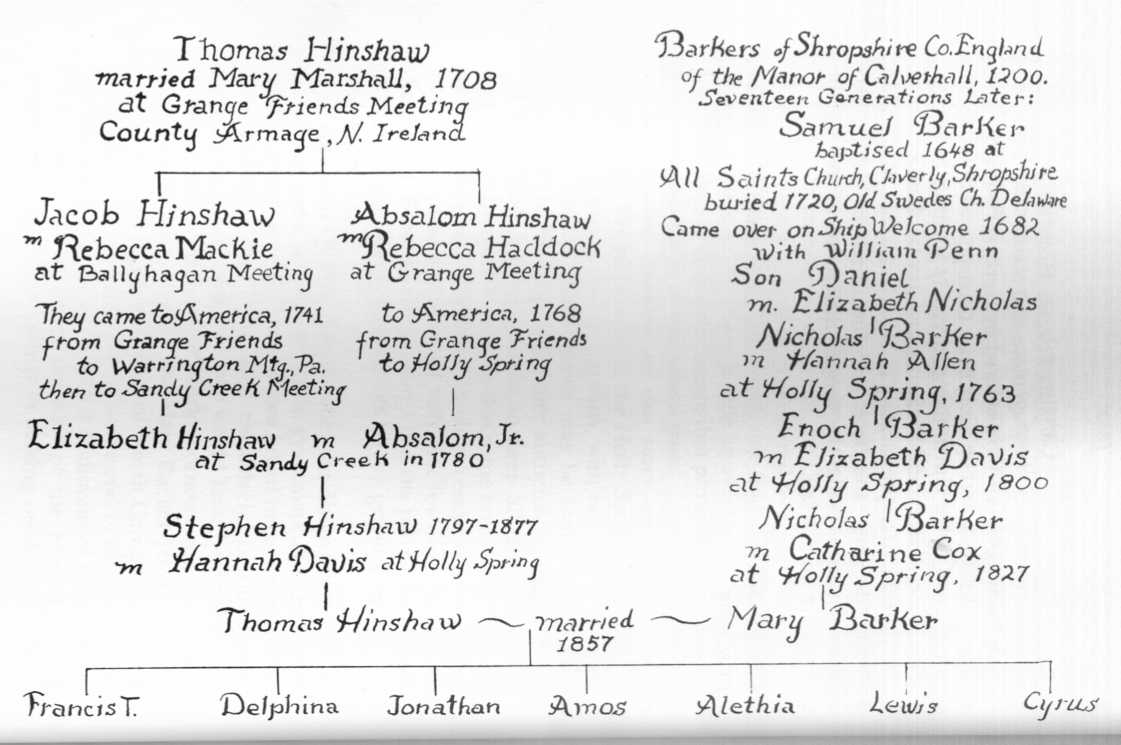 Thomas Hinshaw
married Mary Marshall, 1708
at Grange Friends Meeting
County Armage, N. Ireland
Jacob Hinshaw
m Rebecca Mackie
at Ballyhagan Meeting
They came to America, 1741
from Grange Friends
to Warrington Mtg., Pa.
then to Sandy Creek Meeting
Absalom Hinshaw
m Rebecca Haddock
at Grange Meeting
to America, 1768
from Grange Friends
to Holly Spring
Elizabeth Hinshaw m Absalom, Jr.
at Sandy Creek in 1780
Stephen Hinshaw 1797-1877
m Hannah Davis at Holly Spring
Barkers of Shropshire Co. England
of the Manor of Calverhall, 1200.
Seventeen Generations Later:
Samuel Barker
baptised 1648 at
All Saints Church, Claverly, Shropshire
buried 1720, Old Swedes Ch. Delaware
Came over on Ship Welcome 1682
with William Penn
Son Daniel
m. Elizabeth Nicholas
Nicholas Barker
m Hannah Allen
at Holly Spring, 1763
Enoch Barker
m Elizabeth Davis
at Holly Spring, 1800
Nicholas Barker
m Catharine Cox
at Holly Spring, 1827
Thomas Hinshaw married Mary Barker
1857
Francis T. Delphina Jonathan Amos Alethia Lewis Cyrus